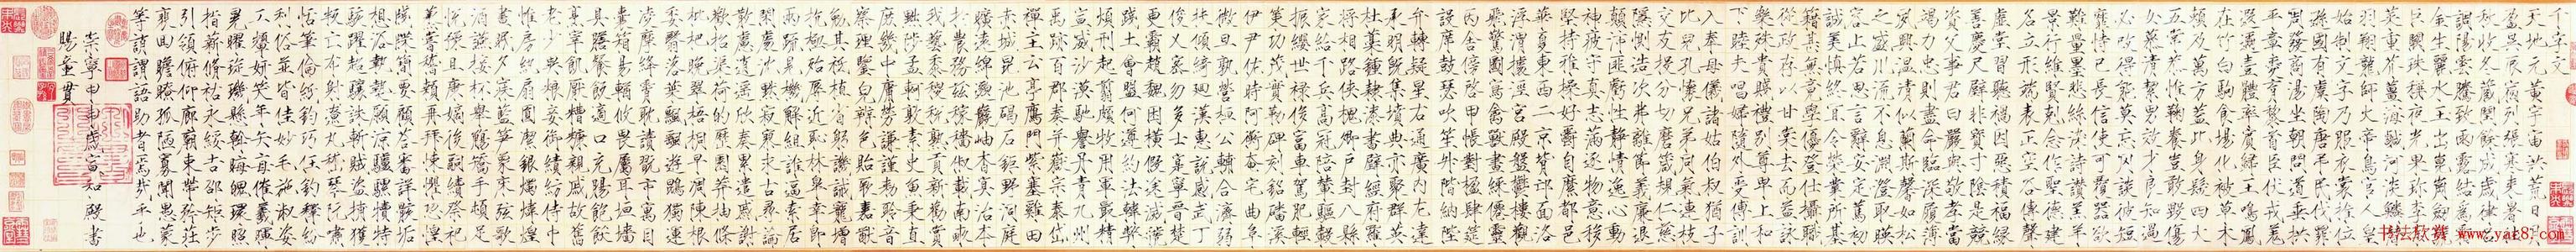 千字文
天地元黃宇宙洪荒日月
盈昃辰宿列張寒來暑往
秋收冬藏閏餘成歲律呂
調陽雲騰致雨露結爲霜
金生麗水玉出崑岡劍號
巨闕珠稱夜光果珍李柰
菜重芥薑海鹹河淡鱗潛
羽翔龍師火帝鳥官人皇
始制文字乃服衣裳推位
遜國有虞陶唐弔民伐罪
周發商湯坐朝問道垂拱
平章愛育黎首臣伏戎羌
遐邇壹體率賓歸王鳴鳳
在竹白駒食場化被草木
賴及萬方蓋此身髮四大
五常恭惟鞠養豈敢毀傷
女慕清潔男效才良知過
必改得能莫忘罔談彼短
靡恃己長信使可覆器欲
難量墨悲絲染詩讚羔羊
景行維賢剋念作聖德建
名立形端表正空谷傳聲
虛堂習聽禍因惡積福緣
善慶尺璧非寶寸陰是競
資父事君曰嚴與敬孝當
竭力忠則盡命臨深履薄
夙興溫凊似蘭斯馨如松
之盛川流不息淵澄取映
容止若思言辭安定篤初
誠美慎終宜令榮業所基
籍甚無竟學優登仕攝職
從政存以甘棠去而益詠
樂殊貴賤禮別尊卑上和
下睦夫唱婦隨外受傅訓
入奉母儀諸姑伯叔猶子
比兒孔懷兄弟同氣連枝
交友投分切磨箴規仁慈
隱惻造次弗離節義廉退
顛沛匪虧性靜情逸心動
神疲守真志滿逐物意移
堅持雅操好爵自縻都邑
華夏東西二京背邙面洛
浮渭據涇宮殿盤鬱樓觀
飛驚圖寫禽獸畫綵僊靈
丙舍傍啓甲帳對楹肆筵
設席鼓瑟吹笙升階納陛
弁轉疑星右通廣內左達
承明既集墳典亦聚群英
杜稾鍾隸漆書壁經府羅
將相路俠槐卿戶封八縣
家給千兵高冠陪輦驅轂
振纓世祿侈富車駕肥輕
策功茂實勒碑刻銘磻溪
伊尹佐時阿衡奄宅曲阜
微旦孰營桓公輔合濟弱
扶傾綺迴漢惠說感武丁
俊乂密勿多士寔寧晉楚
更霸趙魏困橫假途滅虢
踐土會盟何遵約法韓弊
煩刑起翦頗牧用軍最精
宣威沙漠馳譽丹青九州
禹跡百郡秦并嶽宗泰岱
禪主云亭鴈門紫塞雞田
赤城昆池碣石鉅野洞庭
曠遠綿邈巖岫杳冥治本
於農務茲稼穡俶載南畝
我藝黍稷稅熟貢新勸賞
黜陟孟軻敦素史魚秉直
庶幾中庸勞謙謹勑聆音
察理鑒皃辨色貽厥嘉猷
勉其祗植省躬譏誡寵增
抗極殆辱近恥林皋幸即
兩疏見機解組誰逼索居
閑處沈默寂寥求古尋論
散慮逍遥欣奏累遣慼謝
歡招渠荷的歷園莽抽條
枇杷晚翠梧桐早凋陳根
委翳落葉飄颻遊鵾獨運
凌摩絳霄耽讀翫市寓目
囊箱易輶攸畏屬耳垣牆
具膳餐飯適口充腸飽飫
烹宰飢厭糟糠親戚故舊
老少異糧妾御績紡侍巾
帷房紈扇圓潔銀燭煒煌
晝眠夕寐藍笋象床弦歌
酒讌接杯舉觴矯手頓足
悅豫且康嫡後嗣續祭祀
蒸嘗稽顙再拜悚懼恐惶
牋牒簡要顧答審詳骸垢
想浴執熱願涼驢騾犢特
駭躍超驤誅斬賊盜捕獲
叛亡布射遼丸嵇琴阮嘯
恬筆倫紙鈞巧任釣釋紛
利俗並皆佳妙毛施淑姿
工顰妍笑年矢每催羲暉
晃曜璇璣懸斡晦魄環照
指薪脩祜永綏吉邵矩步
引領俯仰廊廟束帶矜莊
裴回瞻眺孤陋寡聞愚蒙
等誚謂語助者焉哉乎也
崇寧甲申歲宣和殿書
賜童貫
书法欣赏 www.yac8.com